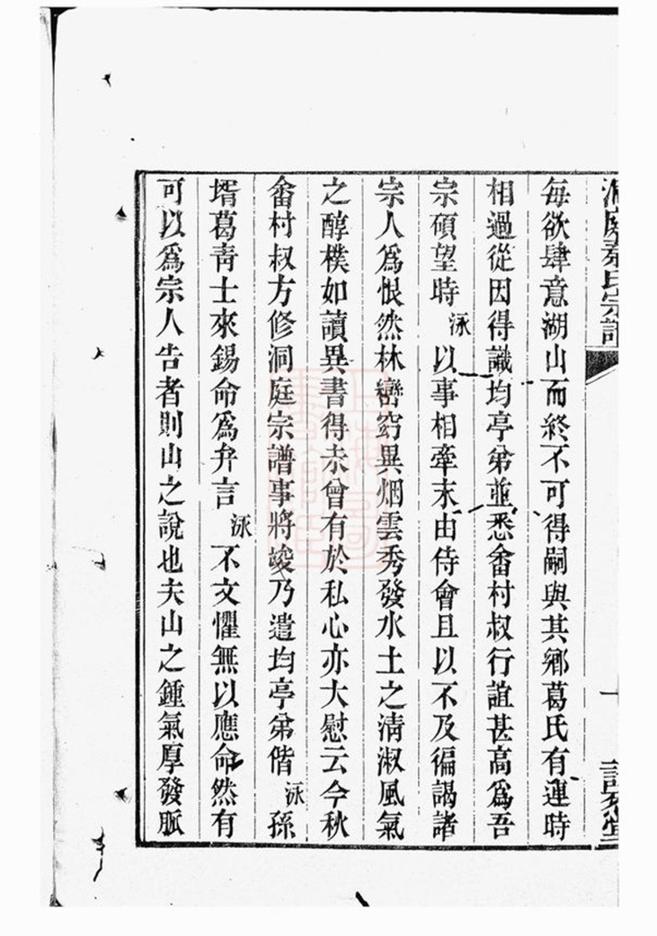 洞庭秦氏宗譜
每欲肆意湖山而終不可得嗣與其鄉葛氏有連時
相過從因得識均亭弟並悉畬村叔行誼甚高爲吾
宗碩望時泳以事相牽未由侍會且以不及徧謁諸
宗人爲恨然林巒窈異烟雲秀發水土之清淑風氣
之醇樸如讀異書得未曾有於私心亦大慰云今秋
畬村叔方修洞庭宗譜事將竣乃遣均亭弟偕泳孫
壻葛靑士來錫命爲弁言泳不文懼無以應命然有
可以爲宗人告者則山之說也夫山之鍾氣厚發脈